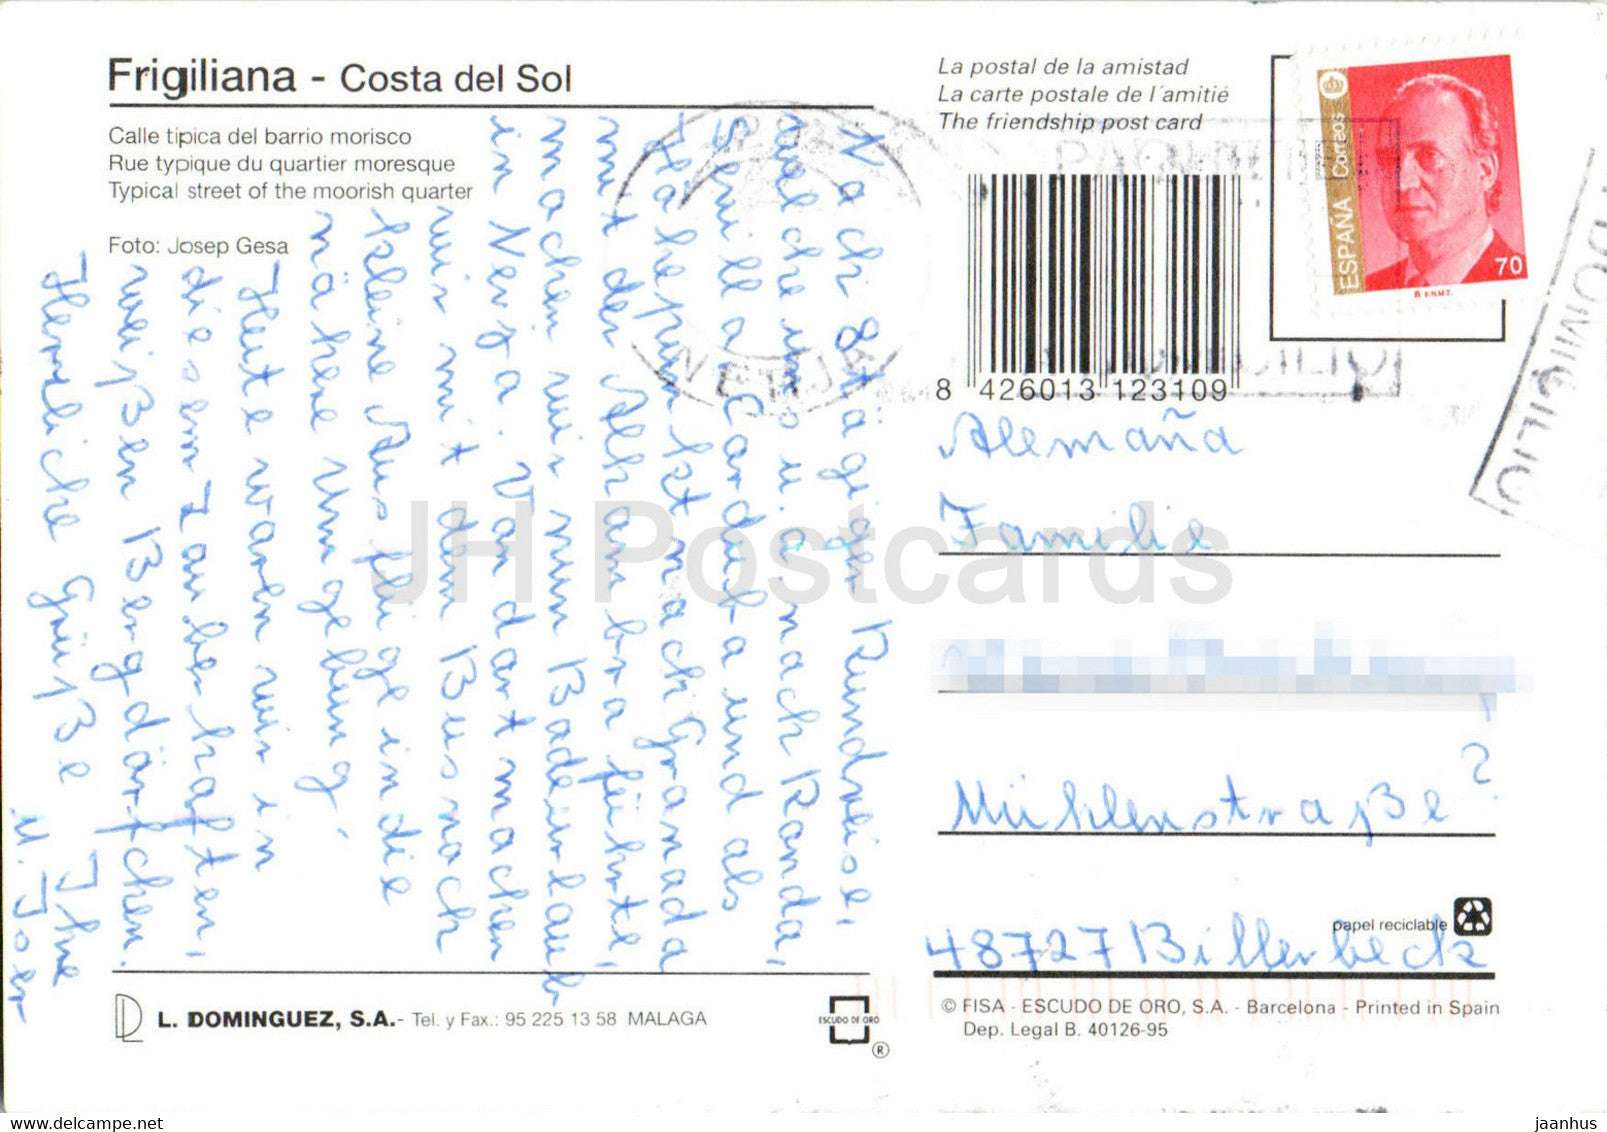 Frigiliana - Costa del Sol
Calle típica del barrio morisco
Rue typique du quartier moresque
Typical street of the moorish quarter
Foto: Josep Gesa
La postal de la amistad
La carte postale de l'amitié
The friendship post card
ESPAÑA Correos
70
F.N.M.T.
NERJA
DOMICILIO
8 426013 123109
Nach 8tägiger Rundreise,
welche uns u.a. nach Ronda,
Sevilla Corduba und als
Höhepunkt nach Granada
mit der Alhambra führte,
machen wir nun Badeurlaub
in Nerja. Von dort machen
wir mit dem Bus noch
kleine Ausflüge in die
nähere Umgebung.
Heute waren wir in
diesem zauberhaften,
weißen Bergdörfchen.
Herzliche Grüße Ihre
Alemaña
Familie
Mühlenstraße ?
48727 Billerbeck
papel reciclable
L. DOMINGUEZ, S.A.- Tel. y Fax.: 95 225 13 58 MALAGA
ESCUDO DE ORO
®
© FISA - ESCUDO DE ORO, S.A. - Barcelona - Printed in Spain
Dep. Legal B. 40126-95
JH Postcards
jaanhus